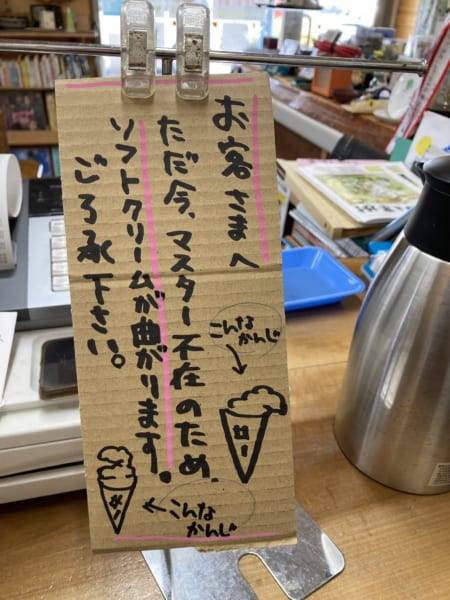 お客さまへ
ただ今、マスター不在のため、
ソフトクリームが曲がります。
ご了承下さい。
こんな
かんじ
こんな
かんじ